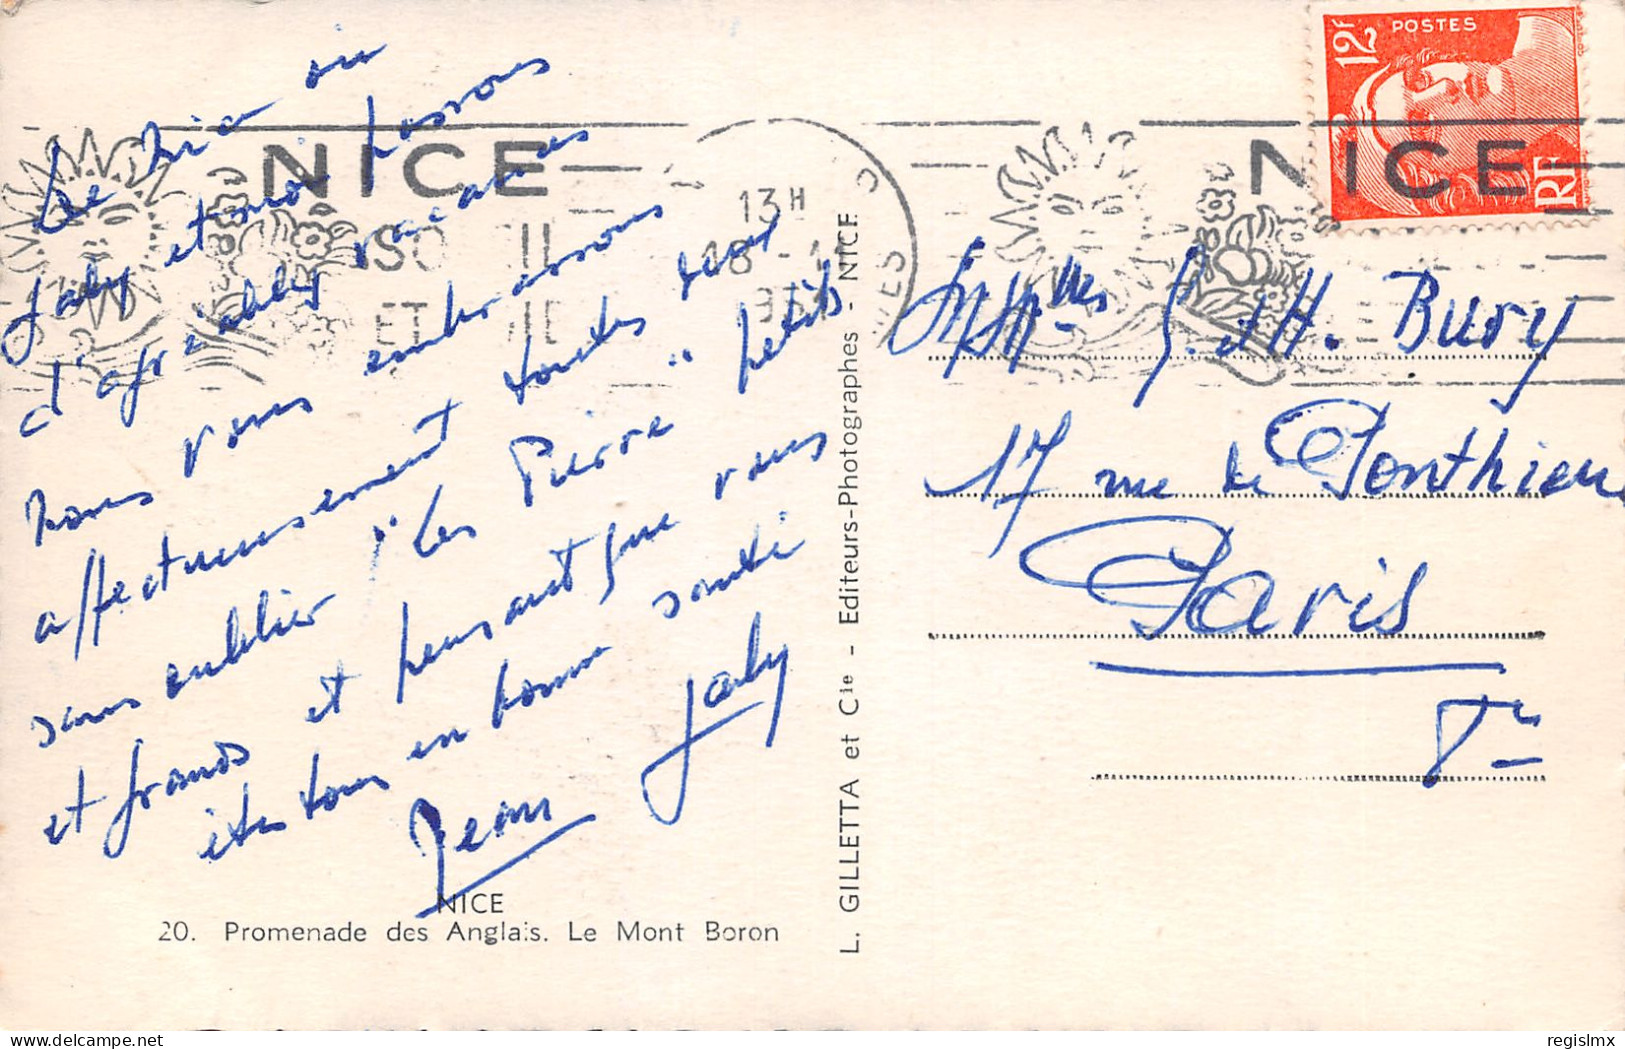 De Nice où
Gaby et moi passons
d'agréables vacances
nous vous embrassons
affectueusement toutes deux
sans oublier "les Pierre" petits
et grands et pensant que vous
êtes tous en bonne santé
Jean Gaby
NICE
20. Promenade des Anglais. Le Mont Boron
L. GILLETTA et Cie - Editeurs-Photographes - NICE
NICE
SOLEIL
ET
13H
18 -
NICE
12F POSTES
RF
Mlles G. et H. Bury
17 rue de Ponthieu
Paris
8e
regislmx